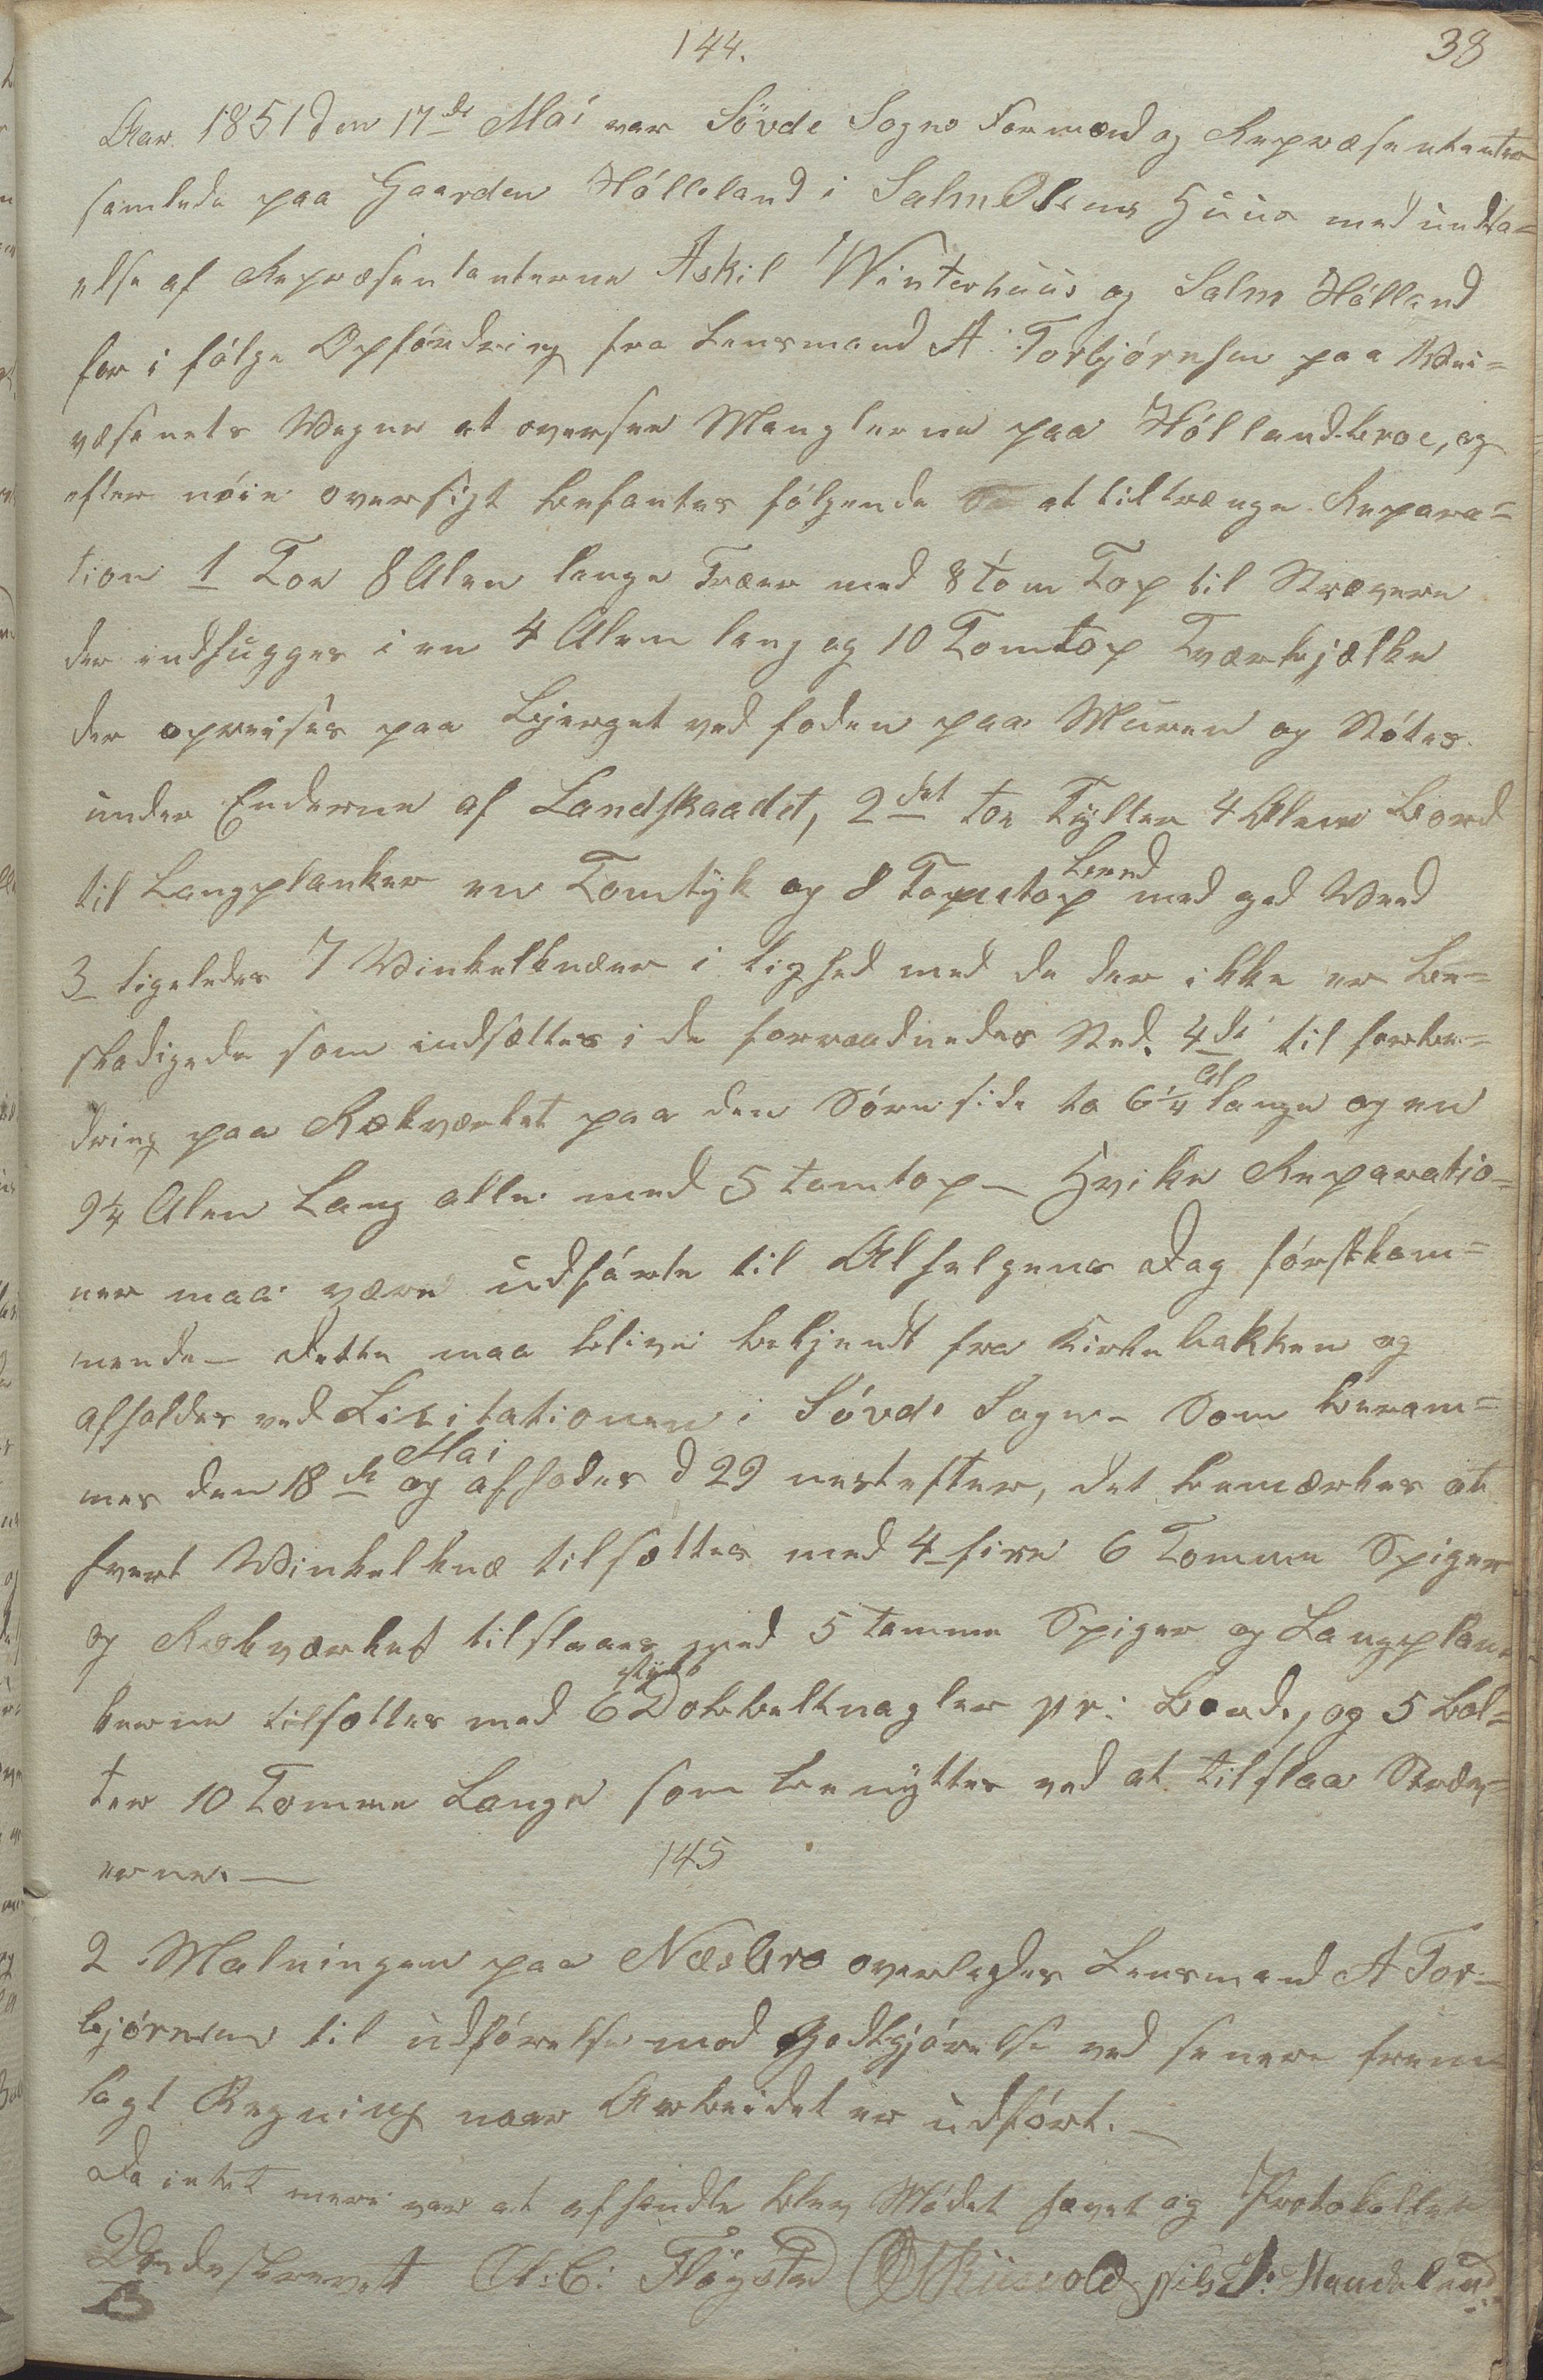 144.
38
Aar 1851 den 17de Mai var Søvde Sogns Formænd og Repræsentanter
samlede paa Gaarden Hølleland i Salm Olsens Huus med undta=
else af Repræsentanterne Askil Winterhuus og Salm Hølland
for i følge Opfordring fra Lensmand A. Torbjørnsen paa Vei=
væsenets Vegne at oversee Manglerne paa Hølland-broe, og
efter nøie oversigt befantes følgende at tiltrænge Repara=
tion 1 Toe 8 Alen lange Træer med 8 tom Top til Strævere
der indhugges i en 4 Alen lang og 10 Tomtop Tværbjelke
der opreises paa Bjerget ved foden paa Muren og Støtes
under Enderne af Landskaadet, 2det toe Tylter 4 Alens Bord
til Langplanker en Tomtyk og 8 Tomtop breed med god Veed
3 ligeledes 7 Vinkelknæer i lighed med de der ikke er be=
skadigede som indsættes i de forraadnedes Sted. 4de til forbe=
dring paa Rækværket paa den Søre side to 6 1/4 Al lange og en
9 1/4 Alen Lang alle med 5 tomtop — Hvilke Reparatio=
ner maa være udførte til Alhelgens Dag førstkom=
mende — dette maa blive bekjendt fra Kirkebakken og
afholdes ved Lisitationen i Søvde Sogn — Som beram=
mes den 18de Mai og afhodes d 29 nestefter, det bemærkes at
hvert Vinkelknæ tilsættes med 4 fire 6 Tomme Spiger
og Rækværket tilslaaes med 5 tomme Spiger og Langplan=
kerne tilsættes med 6 stykk Dobbeltnagler pr: Bord, og 5 bol=
ter 10 Tomme Lange som benyttes ved at tilslaa Stræv=
erne. —
145
2 Malningen paa Næsbro overlades Lensmand A Tor=
bjørnsen til udførelse mod Godtgjørelse ved senere frem=
lagt Regning naar Arbeidet er udført. —
Da intet mere var at afhandle blev Mødet hævet og Protokollen
Undeskrevet A: C: Fløgsted Nils J. Handeland